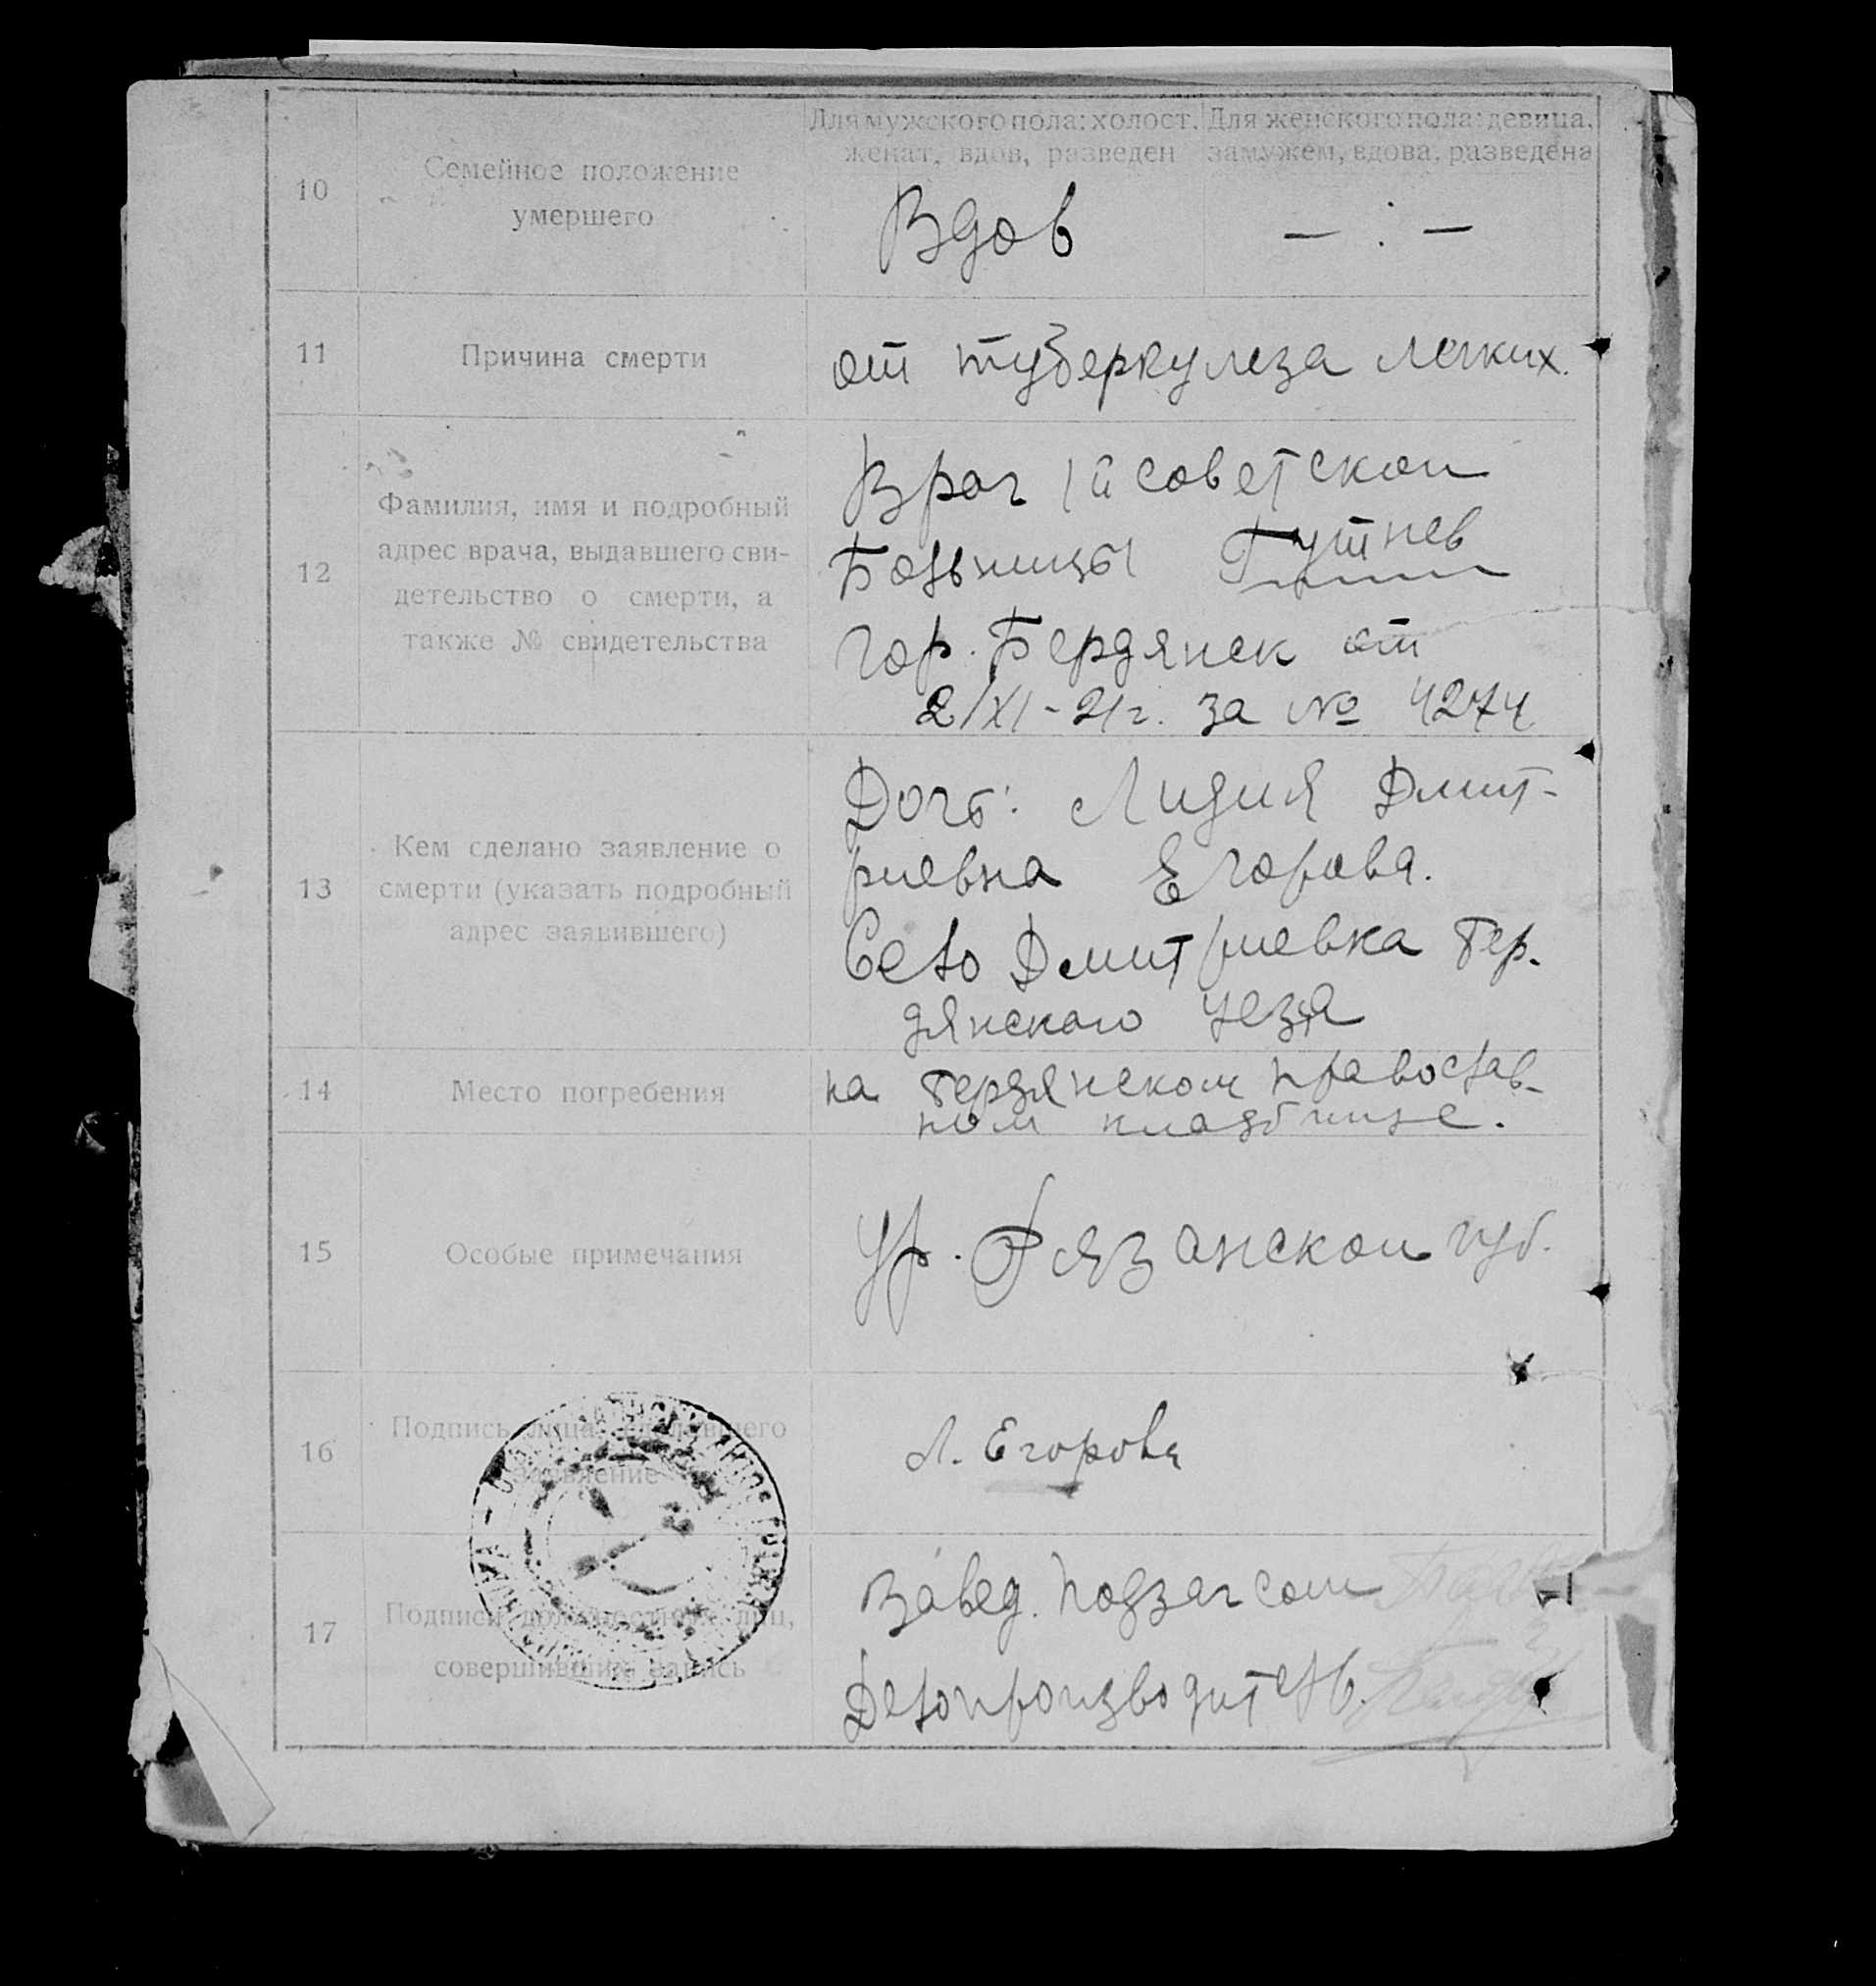 10
Семейное положение
умершего
Для мужского пола: холост,
женат, вдов, разведен
Для женского пола: девица,
замужем, вдова, разведена
Вдов
— . —
11
Причина смерти
от туберкулеза легких.
12
Фамилия, имя и подробный
адрес врача, выдавшего сви-
детельство о смерти, а
также № свидетельства
Врач 1й советской
Больницы Гутнев
гор. Бердянск от
2/XI-21г. за № 4274
13
Кем сделано заявление о
смерти (указать подробный
адрес заявившего)
Дочь: Лидия Дмит-
риевна Егорова.
Село Дмитриевка Бер-
дянского уезд
14
Место погребения
на Бердянском православ-
ном кладбище.
15
Особые примечания
Ур. Рязанской губ.
16
Подпись лица, сделавшего
заявление
Л. Егорова
17
Подписи должностных лиц,
совершивших запись
Завед. подзагсом
Делопроизводитель.